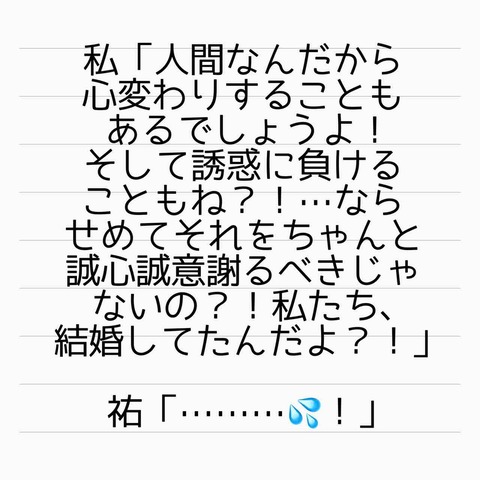 私「人間なんだから
心変わりすることも
あるでしょうよ！
そして誘惑に負ける
こともね？！…なら
せめてそれをちゃんと
誠心誠意謝るべきじゃ
ないの？！私たち、
結婚してたんだよ？！」
祐「………💦！」